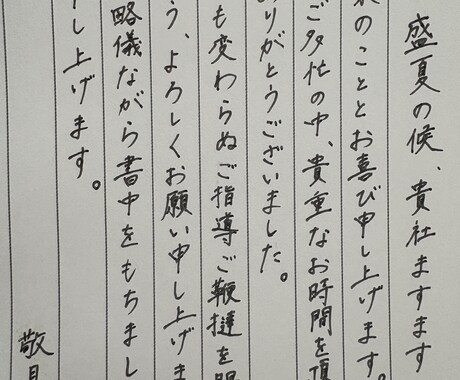 盛夏の候、貴社ますます
のこととお喜び申し上げます。
ご多忙の中、貴重なお時間を頂
りがとうございました。
も変わらぬご指導ご鞭撻を
う、よろしくお願い申し上げま
略儀ながら書中をもちまし
し上げます。
敬具